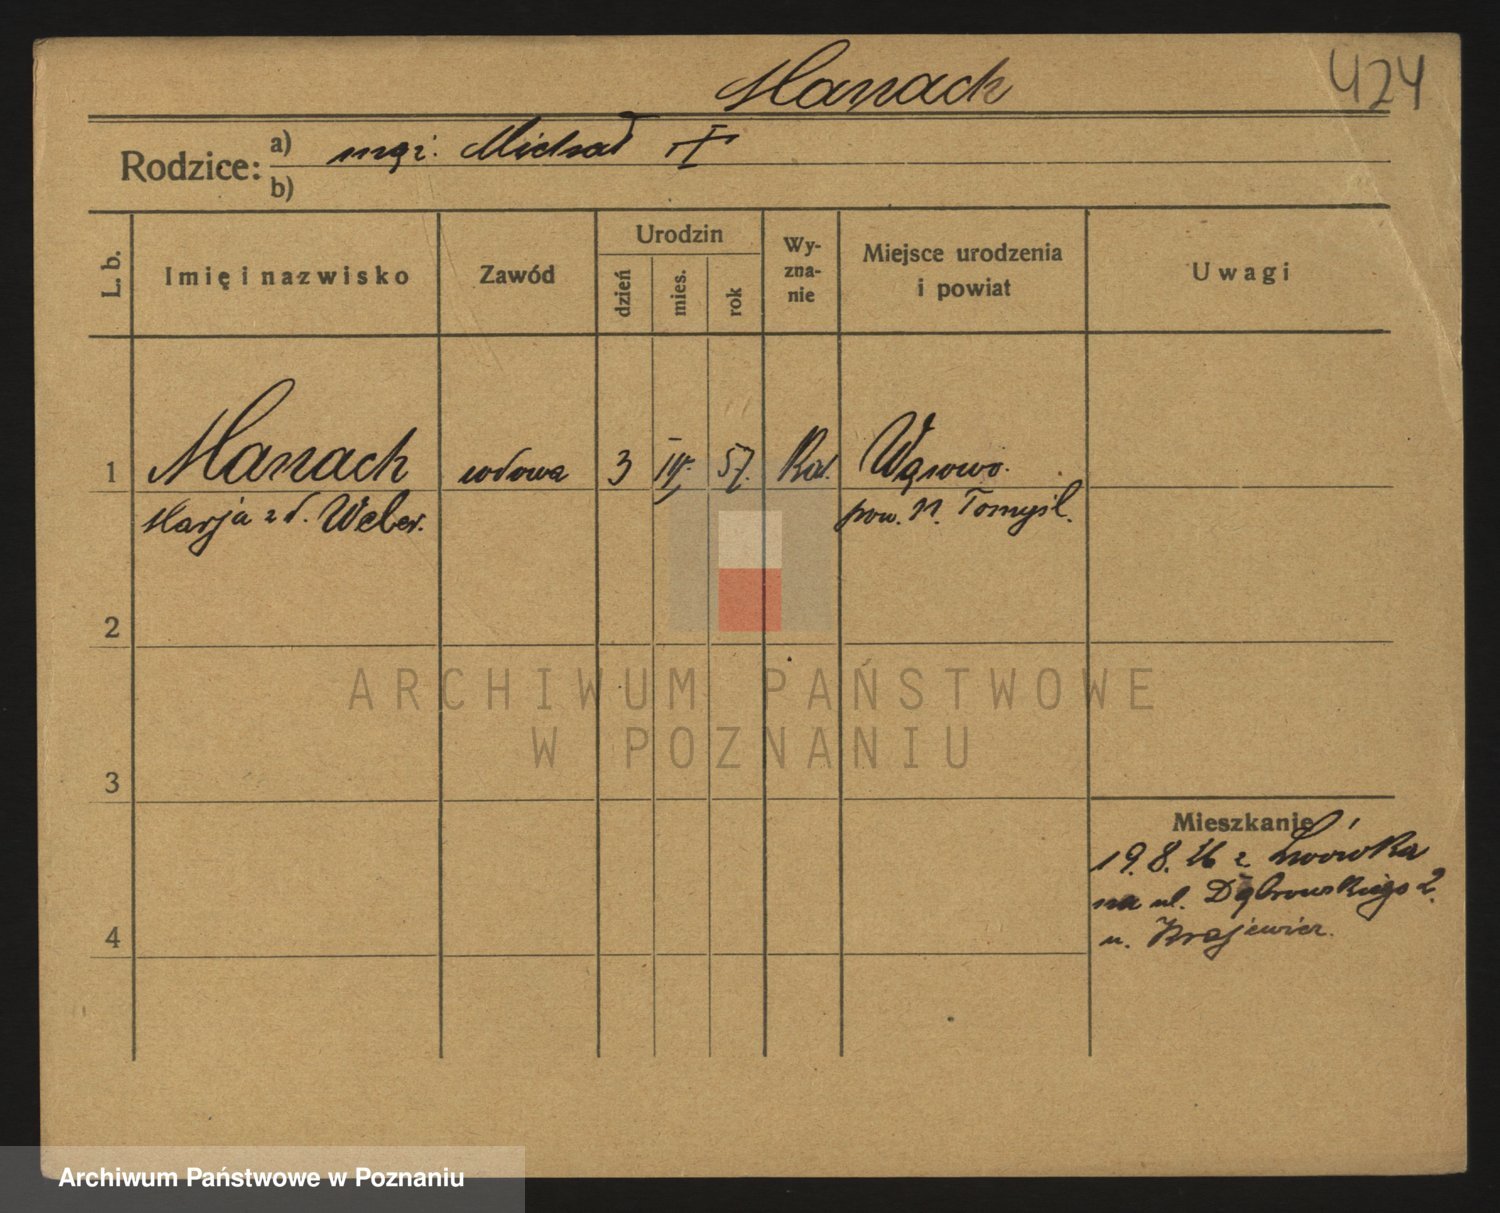 Manach
424
Rodzice:
a) mąż. Michał
b)
L. b.
Imię i nazwisko
Zawód
Urodzin
dzień
mies.
rok
Wy-
zna-
nie
Miejsce urodzenia
i powiat
Uwagi
1 Manach wdowa 3 57. Kat. Wąsowo.
Marja z d. Weber. pow. N. Tomyśl.
2
3
4
Mieszkanie
19. 8. 26 z Lwówka
na ul. Dąbrowskiego 2.
u. Krajewicz.
ARCHIWUM PAŃSTWOWE
W POZNANIU
Archiwum Państwowe w Poznaniu